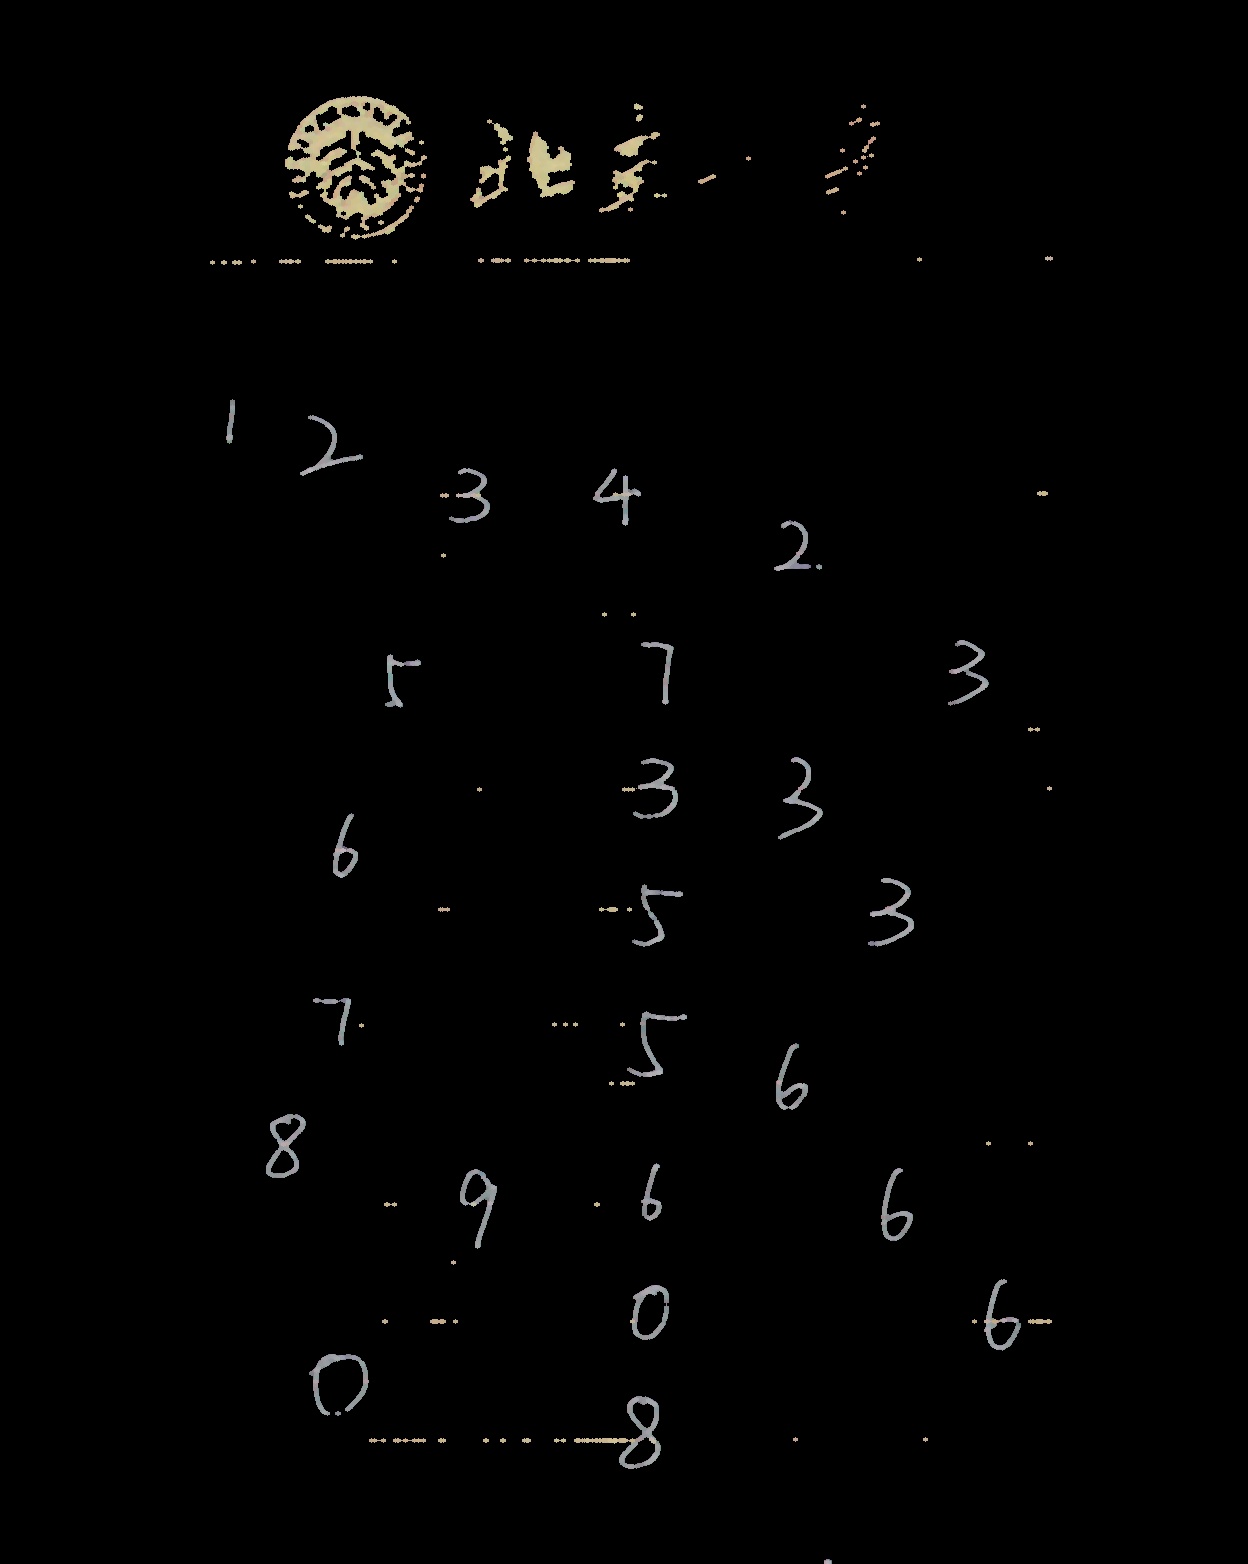 北京
1 2
3 4
2
5 7 3
3 3
6
5 3
7 5
6
8
9 6 6
0 6
0
8